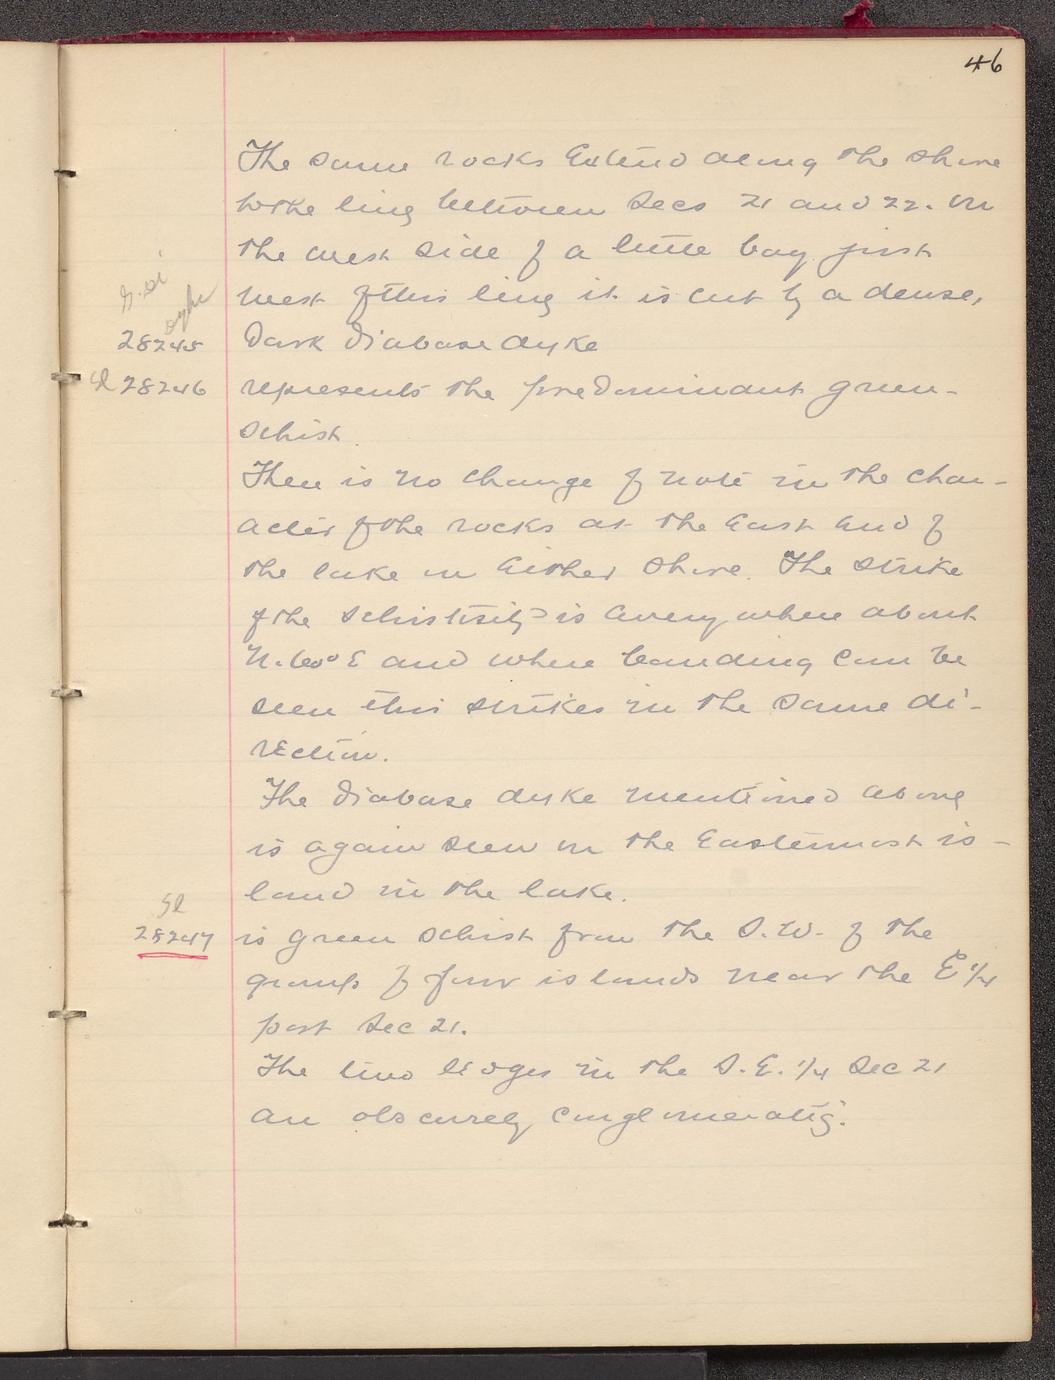 46
The same rocks extend along the shore
to the line between Secs 21 and 22. On
the west side of a little bay just
west of this line it is cut by a dense,
28245 Dark diabase dyke
sl 28246 represents the predominant green-
schist.
There is no change of note in the char-
acter of the rocks at the East end of
the lake on either shore. The strike
of the schistosity is everywhere about
N. 60° E and where banding can be
seen this strikes in the same di-
rection.
The diabase dyke mentioned above
is again seen on the Easternmost is-
land in the lake.
sl
28247 is green schist from the S.W. of the
group of four islands near the E 1/4
post Sec 21.
The two ledges in the S.E. 1/4 Sec 21
are obscurely conglomeratic.